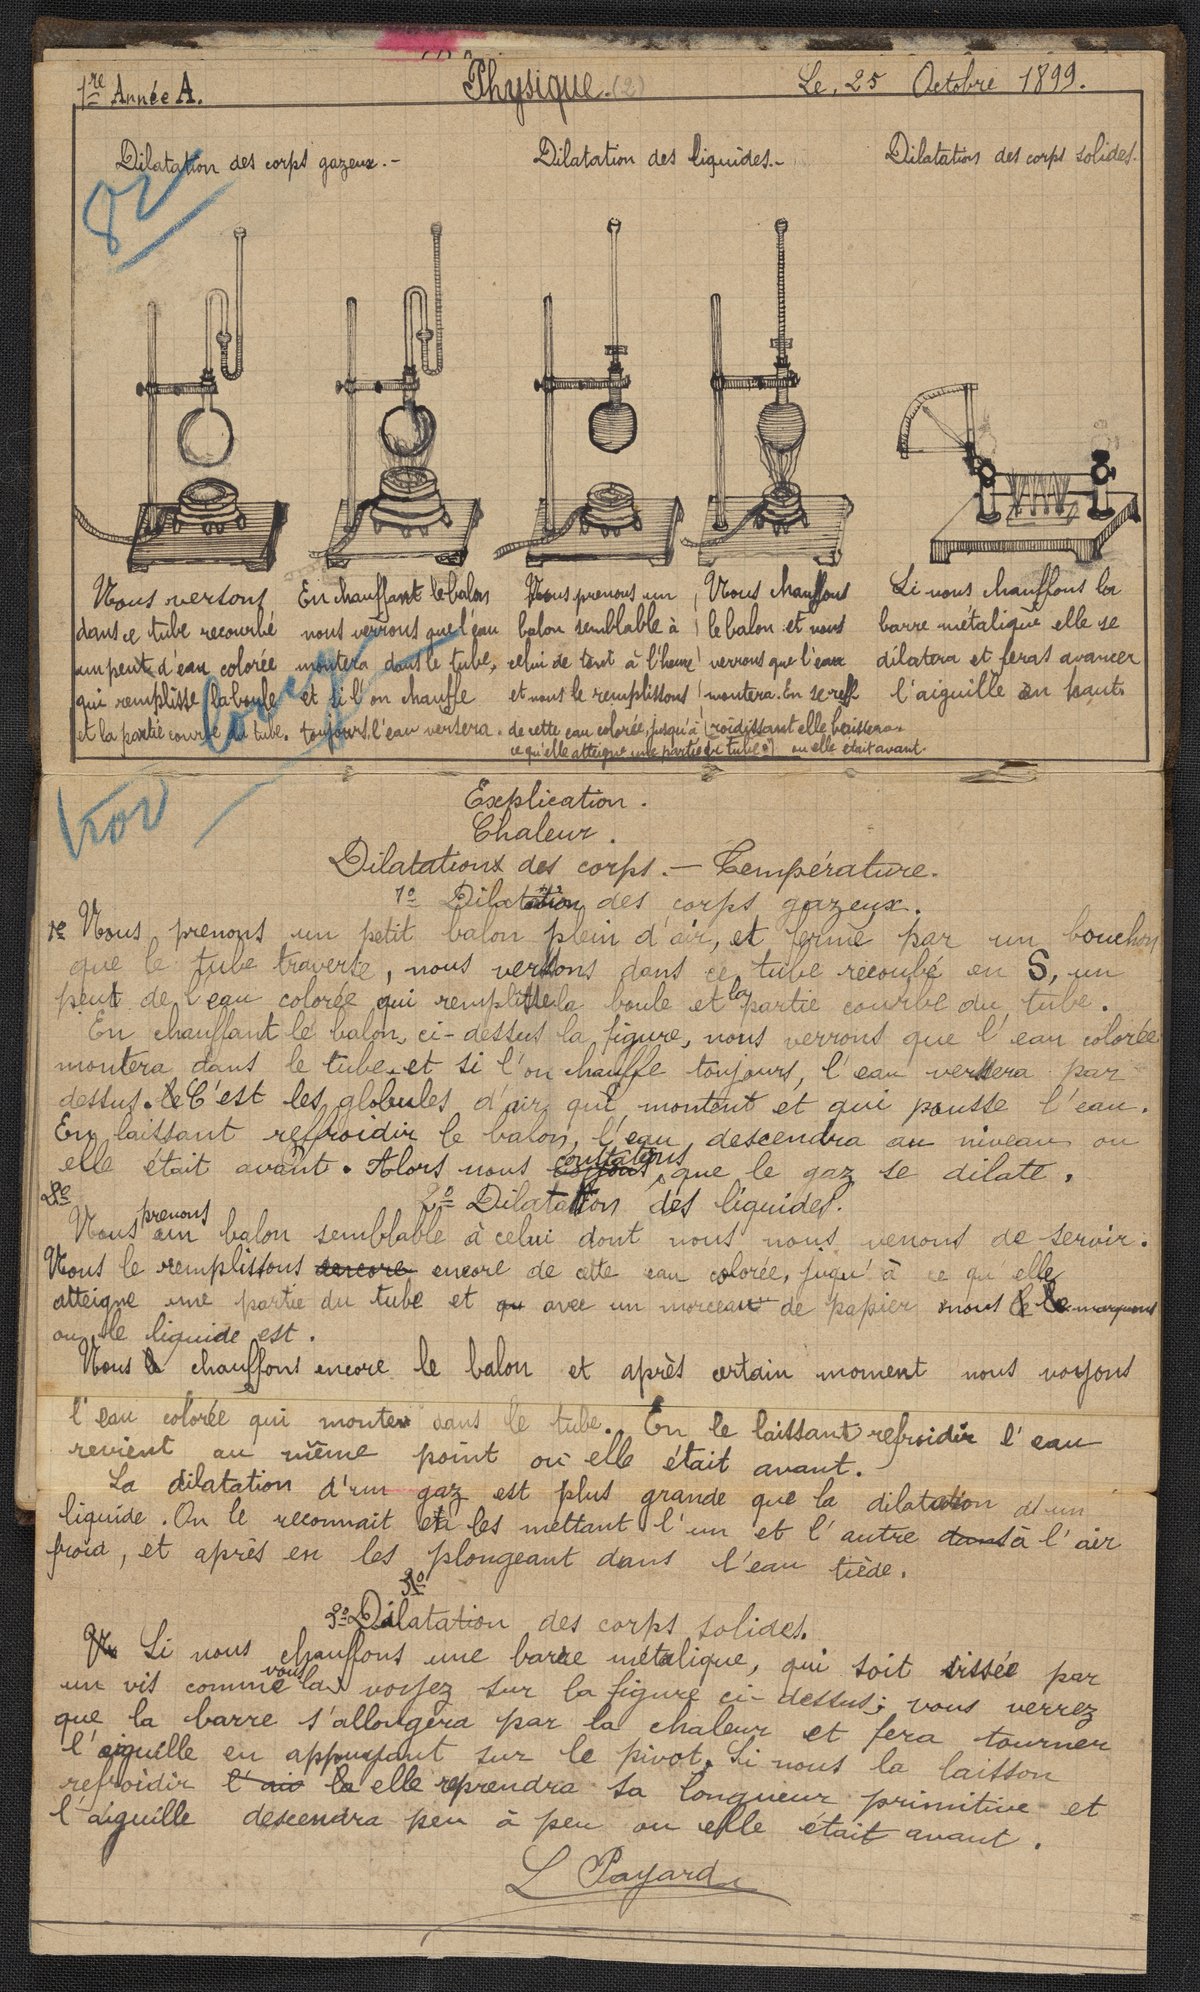 1re Année A.
Physique. (2)
Le, 25 Octobre 1899.
Dilatation des corps gazeux.-
Dilatation des liquides.-
Dilatation des corps solides.
Nous versons
dans ce tube recourbé
un peut d'eau colorée
qui remplisse la boule
et la partie courbe du tube.
En chauffant le balon
nous verrons que l'eau
montera dans le tube,
et si l'on chauffe
toujours, l'eau versera.
Nous prenons un
balon semblable à
celui de tout à l'heure
et nous le remplissons
de cette eau colorée, jusqu'à
ce qu'elle atteigne une partie de tube
Nous chauffons
le balon et nous
verrons que l'eau
montera. En se ref-
roidissant elle baissera
ou elle était avant.
Si nous chauffons la
barre métalique elle se
dilatera et feras avancer
l'aiguille en haut.
Explication.
Chaleur.
Dilatations des corps. - Température.
1o Dilatation des corps gazeux.
Nous prenons un petit balon plein d'air, et fermé par un bouchon
que le tube traverse, nous versons dans ce tube recoubé en S, un
peut de l'eau colorée qui remplisse la boule et la partie courbe du tube.
En chauffant le balon, ci-dessus la figure, nous verrons que l'eau colorée
montera dans le tube, et si l'on chauffe toujours, l'eau versera par
dessus. C'est les globules d'air qui montent et qui pousse l'eau.
En laissant refroidir le balon, l'eau descendra au niveau ou
elle était avant. Alors nous constatons que le gaz se dilate.
2o Dilatation des liquides.
Nous prenons un balon semblable à celui dont nous nous venons de servir.
Nous le remplissons encore encore de cette eau colorée, juqu'à ce qu'elle
atteigne une partie du tube et qu avec un morceau de papier nous le marquons
ou le liquide est.
Nous chauffons encore le balon et après certain moment nous voyons
l'eau colorée qui monter dans le tube. En le laissant refroidir l'eau
revient au même point où elle était avant.
La dilatation d'un gaz est plus grande que la dilatation d'un
liquide. On le reconnait en les mettant l'un et l'autre dans à l'air
froid, et après en les plongeant dans l'eau tiède.
3o Dilatation des corps solides.
Si nous chauffons une barre métalique, qui soit vissée par
un vis comme vous la voyez sur la figure ci-dessus; vous verrez
que la barre s'allongera par la chaleur et fera tourner
l'aiguille en appuyant sur le pivot. Si nous la laisson
refroidir l'air elle reprendra sa longueur primitive et
l'aiguille descendra peu à peu ou elle était avant.
L Payard